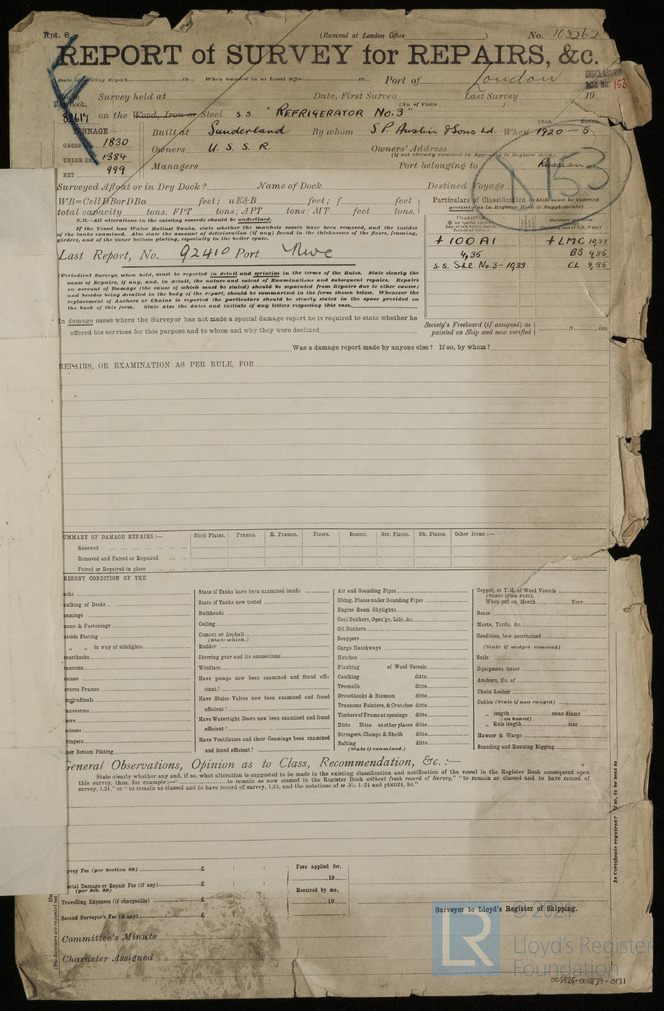 Rpt. 8.
(Received at London Office
No. 103262
REPORT of SURVEY for REPAIRS, &c.
Port of London
Survey held at Date, First Survey Last Survey 19
(No. of Visits
on the Wood, Iron or Steel s.s. "REFRIGERATOR No. 3"
TONNAGE
GROSS 1830
UNDER 1384
NET 999
Built at Sunderland By whom S P Austin & Sons Ld. When 1920-5
YEAR. MONTH.
Owners U.S.S.R. Owners' Address
(If not already recorded in Appendix to Register Book.)
Managers Port belonging to Russian
N153
Surveyed Afloat or in Dry Dock? Name of Dock Destined Voyage
WB=CellDBorDBa feet; uE&B feet; f feet
total capacity tons. FPT tons; APT tons; MT feet tons.
N.B.—All alterations in the existing records should be underlined.
If the Vessel has Water Ballast Tanks, state whether the manhole covers have been removed, and the insides
of the tanks examined. Also state the amount of deterioration (if any) found in the thicknesses of the floors, framing,
girders, and of the inner bottom plating, especially in the boiler space.
Last Report, No. 92410 Port
Particulars of Classification (which must be inserted
+ 100A1 + LMC 19,33
4,35 BS 4,35
s.s. She. No. 3 - 1933 CL 4,35
(Periodical Surveys, when held, must be reported in detail and seriatim in the terms of the Rules. State clearly the
cause of Repairs, if any, and, in detail, the nature and extent of Examinations and subsequent repairs. Repairs
on account of Damage (the cause of which must be stated) should be separated from Repairs due to other causes;
and besides being detailed in the body of the report, should be summarised in the form shown below. Whenever the
replacement of Anchors or Chains is reported the particulars should be clearly stated in the space provided on
the back of this form. State also the dates and initials of any letters respecting this case.
In damage cases where the Surveyor has not made a special damage report he is required to state whether he
offered his services for this purpose and to whom and why they were declined
Society's Freeboard (if assigned) as
painted on Ship and now verified
Was a damage report made by anyone else? If so, by whom?
REPAIRS, OR EXAMINATION AS PER RULE, FOR
SUMMARY OF DAMAGE REPAIRS:—
Shell Plates. Frames. R. Frames. Floors. Beams. Str. Plates. Bk. Plates. Other Items:—
Renewed
Removed and Faired or Repaired
Faired or Repaired in place
PRESENT CONDITION OF THE
State if Tanks have been examined inside
State if Tanks now tested
Bulkheads
Ceiling
Cement or Asphalt
(State which.)
Rudder
Steering gear and its connections
Windlass
Have pumps now been examined and found effi-
cient?
Have Sluice Valves now been examined and found
efficient?
Have Watertight Doors now been examined and found
efficient?
Have Ventilators and their Coamings been examined
and found efficient?
Air and Sounding Pipes
Dblng. Plates under Sounding Pipes
Engine Room Skylights
Coal Bunkers, Open'gs, Lids, &c.
Oil Bunkers
Scuppers
Cargo Hatchways
Hatches
Planking of Wood Vessels
Caulking ditto
Treenails ditto
Breasthooks & Stemson ditto
Transoms, Pointers, & Crutches ditto
Timbers of Frame at openings ditto
Ditto Ditto at other places ditto
Stringers, Clamps & Shelfs ditto
Salting ditto
(State if examined.)
Copper, or Y.M. of Wood Vessels
(State if on Felt.)
When put on, Month Year
Boats
Masts, Yards, &c.
Condition, how ascertained
(State if wedges removed)
Sails
Equipment letter
Anchors, No. of
Chain Locker
Cables (State if now ranged)
" length mean diamr.
(on board)
" Rule length size
Hawser & Warps
Standing and Running Rigging
General Observations, Opinion as to Class, Recommendation, &c.:—
State clearly whether any and, if so, what alteration is suggested to be made in the existing classification and notification of the vessel in the Register Book consequent upon
this survey, thus, for example:—"to remain as now classed in the Register Book without fresh record of Survey," "to remain as classed and to have record of
survey, 1,24," or "to remain as classed and to have record of survey, 1,24, and the notations of
Survey Fee (per Section 29) £ : :
Special Damage or Repair Fee (if any) £
(per Sec. 29)
Travelling Expenses (if chargeable) £
Second Surveyor's Fee (if any) £
Fees applied for,
19
Received by me,
19
Surveyor to Lloyd's Register of Shipping.
Committee's Minute
Character Assigned
LR
Lloyd's Register
Foundation